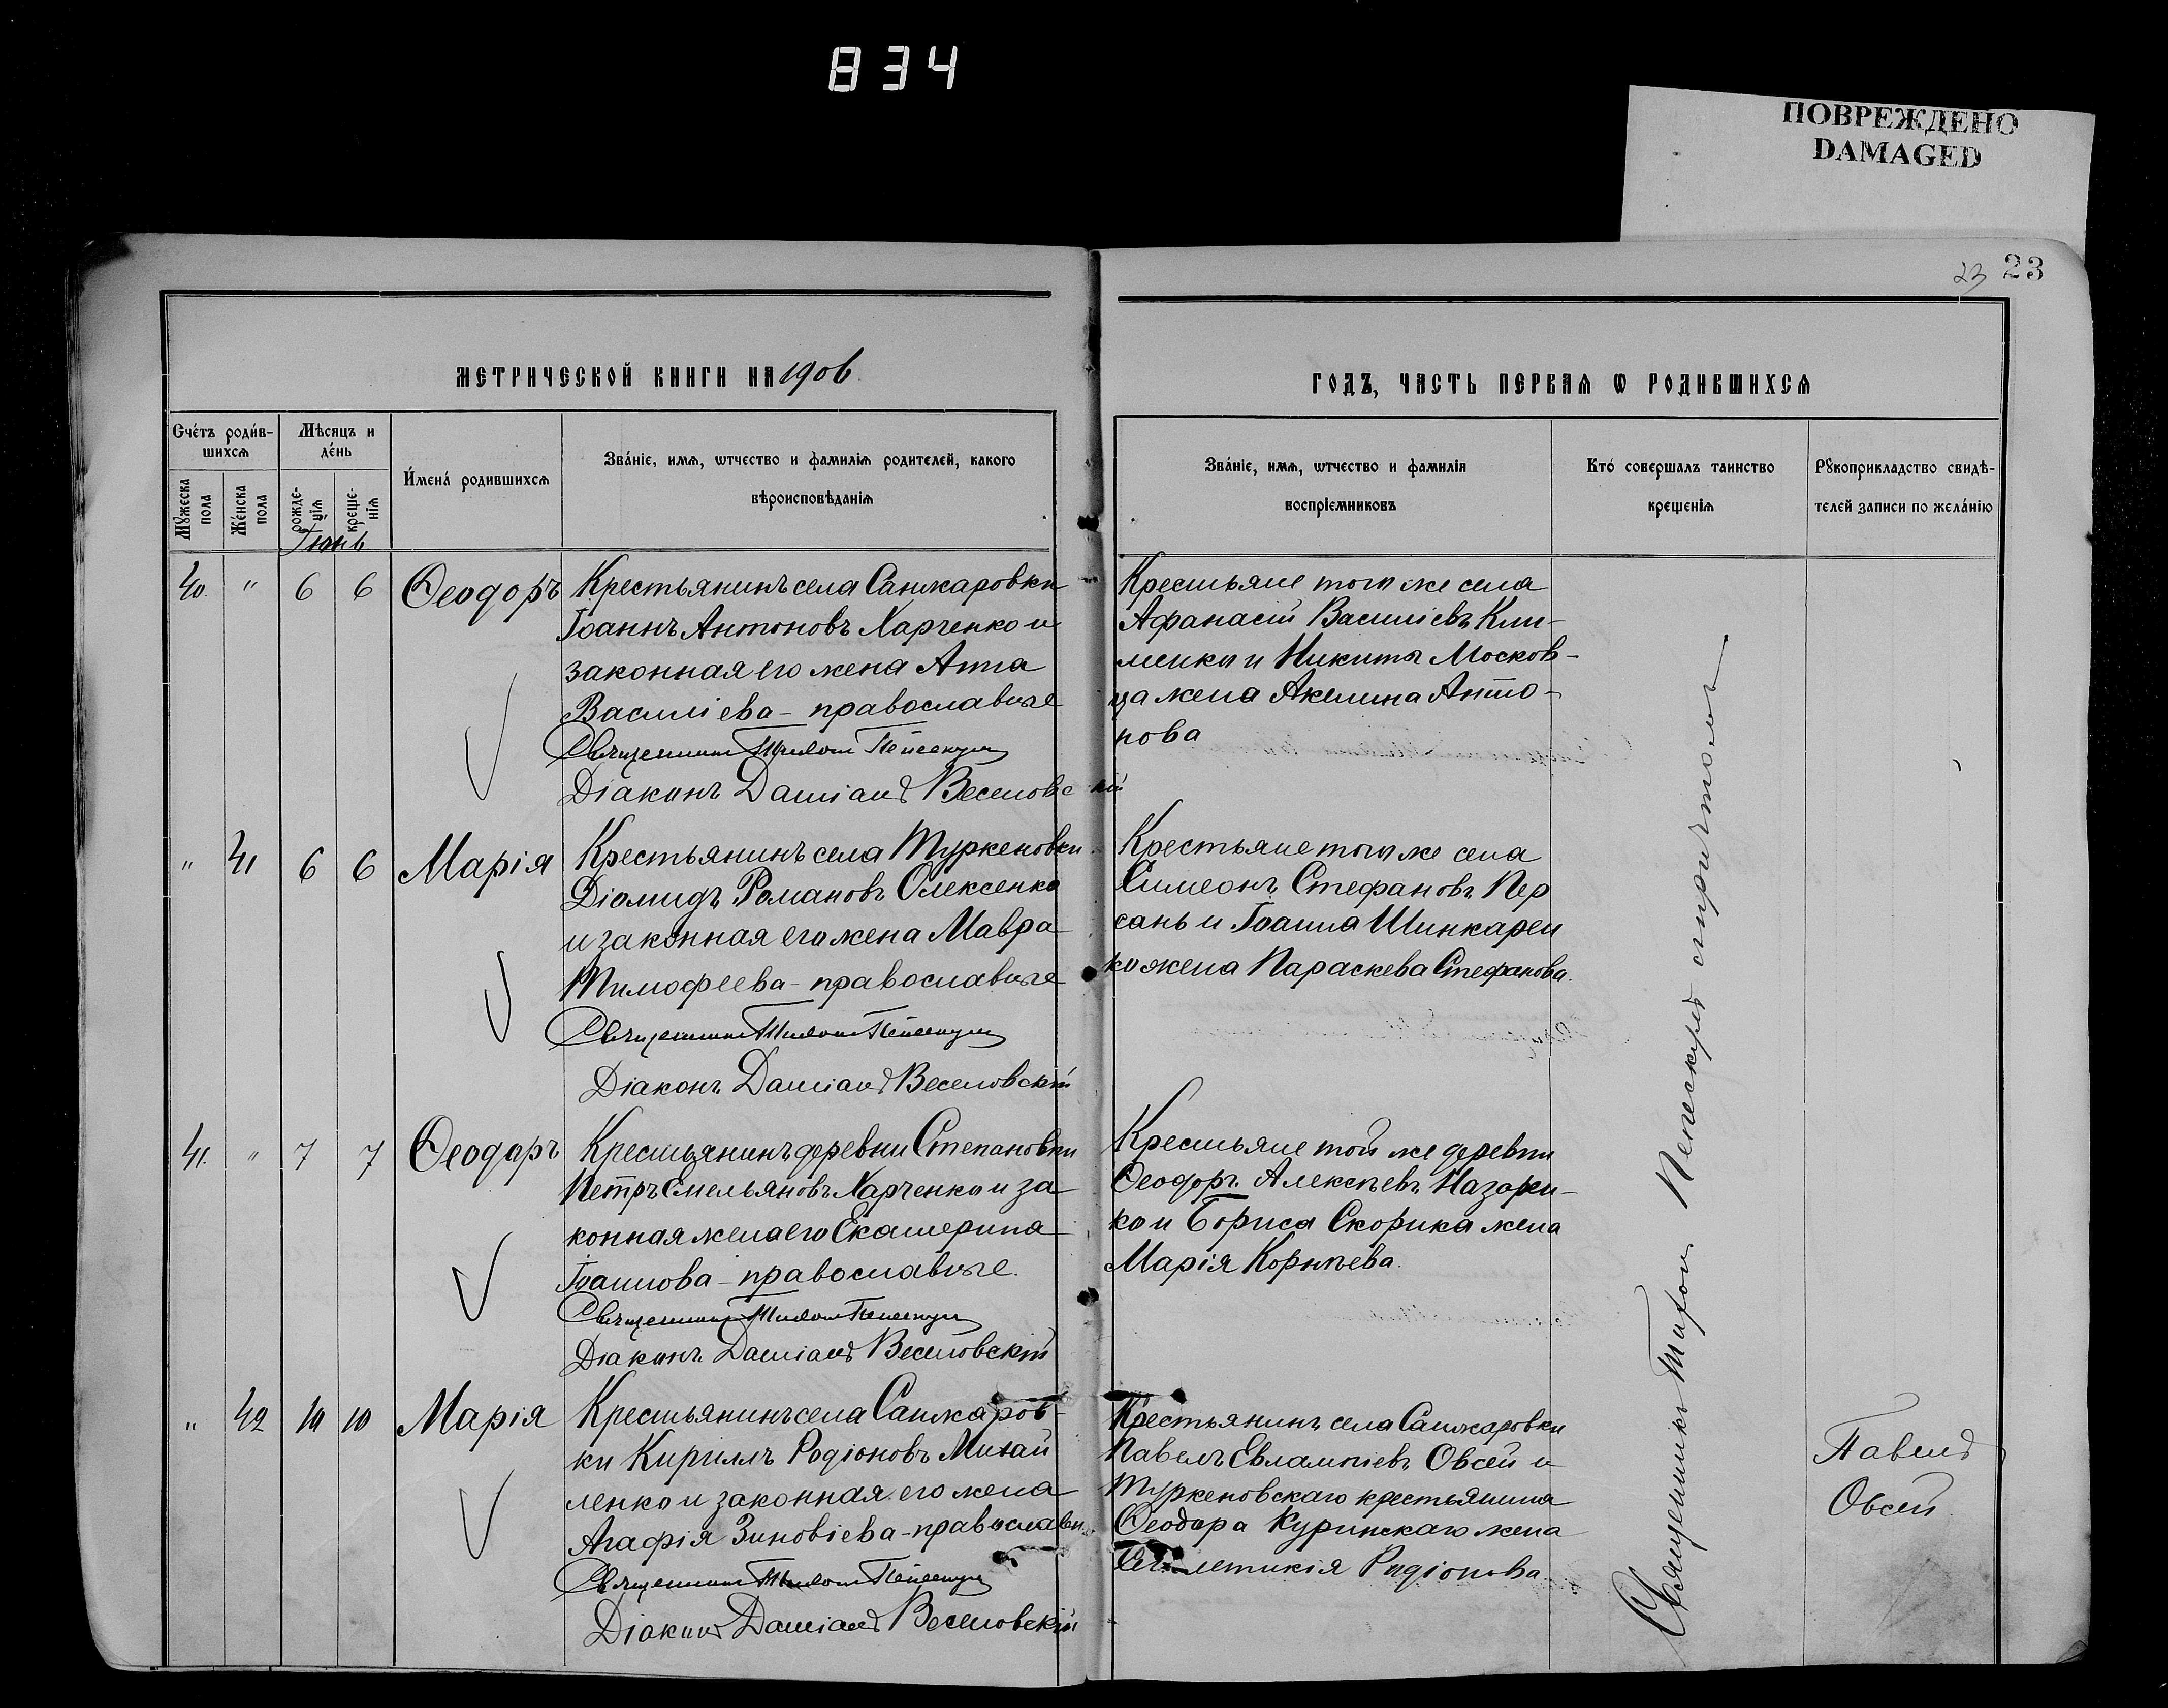 834
ПОВРЕЖДЕНО
DAMAGED
23 23
МЕТРИЧЕСКОЙ КНИГИ НА 1906
ГОДЪ, ЧАСТЬ ПЕРВАЯ Ѡ РОДИВШИХСЯ
Счетъ родив-
шихся
Мужеска пола
Женска пола
Мѣсяцъ и
день
рожде-
нія
креще-
нія
Имена родившихся
Званіе, имя, ѡтчество и фамилія родителей, какого
вѣроисповѣданія
Званіе, имя, ѡтчество и фамилія
воспріемниковъ
Кто совершалъ таинство
крещенія
Рукоприкладство свидѣ-
телей записи по желанію
Іюнь
40. " 6 6 Ѳеодоръ
Крестьянинъ села Санжаровки
Іоаннъ Антоновъ Харченко и
законная его жена Анна
Василіева - православные
Священникъ Тихон
Діаконъ Даміанъ Веселовскій
Крестьяне того же села
Афанасій Василіевъ Кли-
менко и Никиты Москов-
ца жена Акелина Анто-
нова
" 41 6 6 Марія
Крестьянинъ села Туркеновки
Діомидъ Романовъ Олексенко
и законная его жена Мавра
Тимофеева - православные
Священникъ Тихон
Діаконъ Даміанъ Веселовскій
Крестьяне того же села
Симеонъ Стефановъ Пер
сань и Іоанна Шинкарен
ко жена Параскева Стефанова.
41. " 7 7 Ѳеодоръ
Крестьянинъ деревни Степановки
Петръ Емельяновъ Харченко и за
конная жена его Екатерина
Іоаннова - православные.
Священникъ Тихон
Діаконъ Даміанъ Веселовскій
Крестьяне той же деревни
Ѳеодоръ Алексѣевъ Назарен-
ко и Бориса Скорика жена
Марія Корнѣева.
" 42 10 10 Марія
Крестьянинъ села Санжаров-
ки Кириллъ Родіоновъ Михай
ленко и законная его жена
Агафія Зиновіева - православн.
Священникъ Тихон
Діаконъ Даміанъ Веселовскій
Крестьянинъ села Санжаровки
Павелъ Евлампіевъ Овсій и
Туркеновскаго крестьянина
Ѳеодора Куринскаго жена
Родіонова
Священникъ Тихон съ причтомъ
Павелъ
Овсій